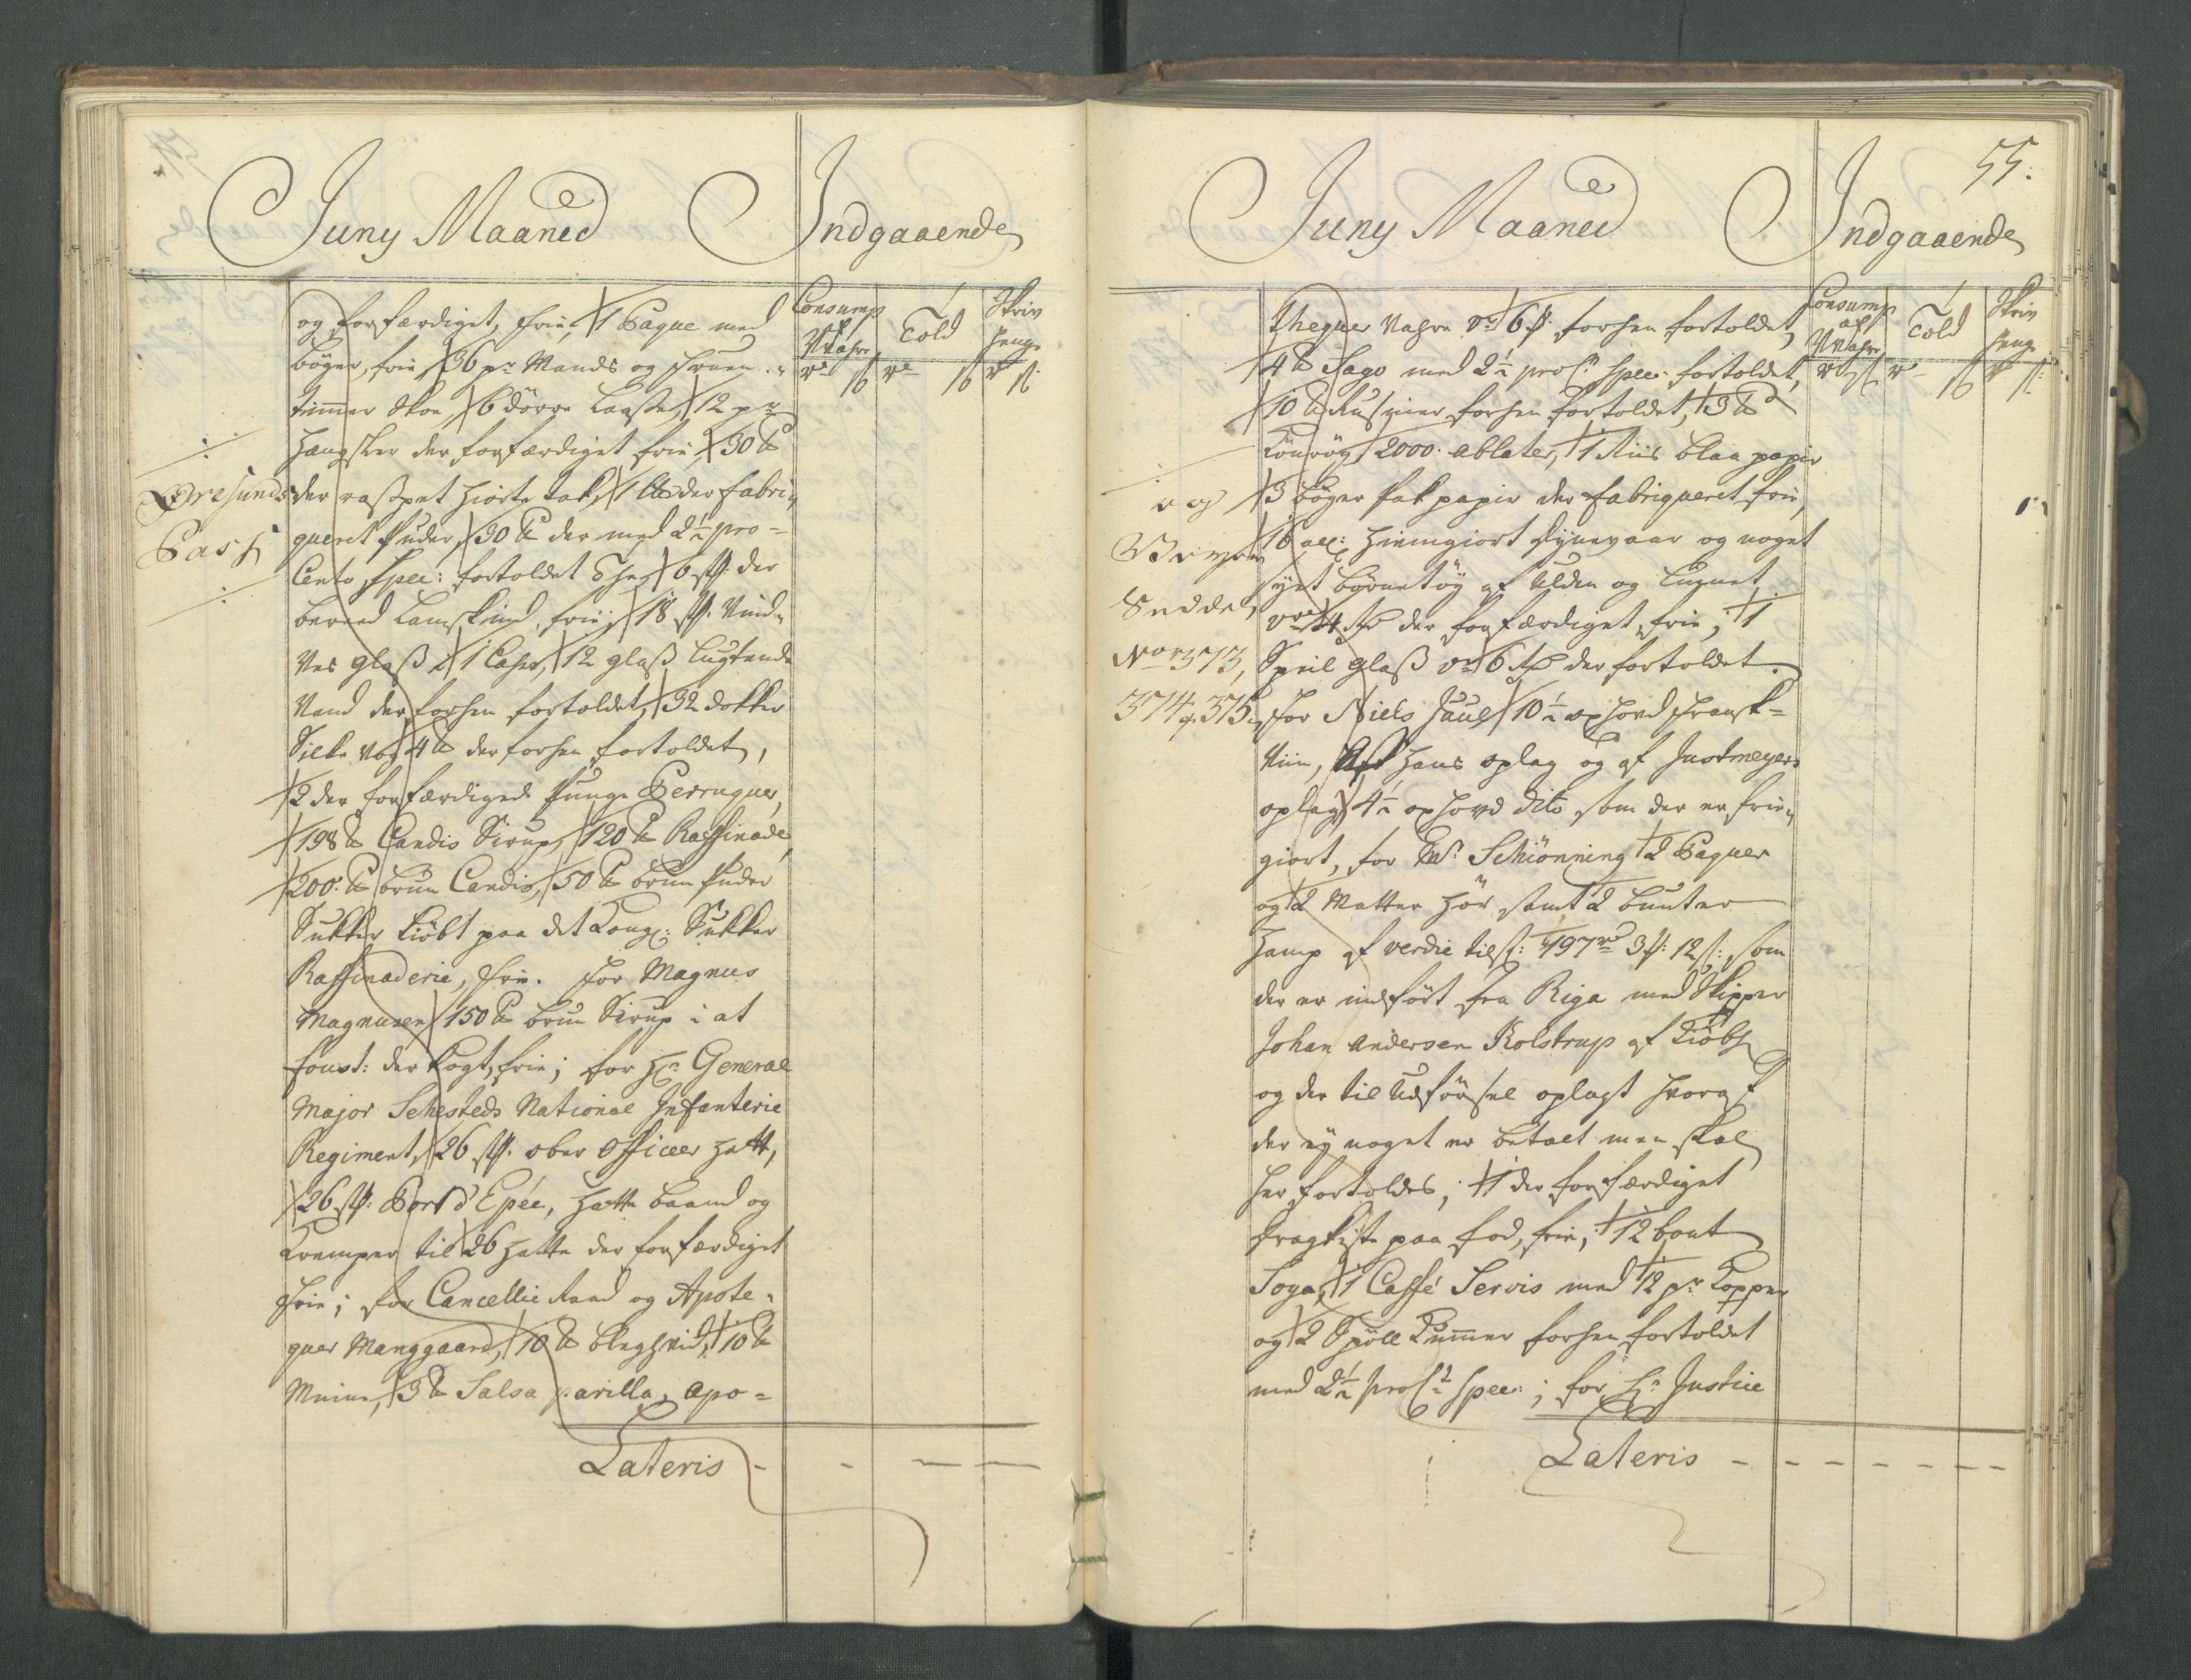 Juny Maaned Indgaaende
Consump
af
Vahre
Told
Skriv
Penge
rd ß rd ß rd ß
og forfærdiget, frie, 1 Paque med
bøger, frie, 36 pr Mands og Fruen-
timmer Skoe, 6 dørre Laase, 12 pr
Hængsler der forfærdiget frie, 30 ℔
der raspet Hiorte tak, 1 der fabri-
queret Puder, 30 ℔ der med 2½ pro-
Cento Spec: fortoldet The, 6 st: der
bereed Lamskind, frie, 18 st: Vind-
ves glaß i 1 Casse, 12 glaß Lugtende
Vand der forhen fortoldet, 32 dokker
Silke vog 4 ℔ der forhen fortoldet,
2 der forfærdigede Punge Perruquer,
198 ℔ Candis Sirup, 120 ℔ Raffinade,
200 ℔ bruun Candis, 50 ℔ bruun Puder
Sukker kiøbt paa det Kongl: Sukker
Raffinaderie, frie. for Magnus
Magnusen 150 ℔ bruun Sirup i at
foust: der kogt, frie; for Hr General
Major Schesteds National Infanterie
Regiment, 26 st. ober Officeer Hatt,
26 st: Port d'Epée, Hatte baand og
Kramper til 26 Hatte der forfærdiget
frie; for Cancellie Raad og Apote-
quer Manggaard, 10 ℔ blyehvid, 10 ℔
Mine, 3 ℔ Salsa parilla, Apo-
Øresunds
Pass
Lateris - - - -
55.
Juny Maaned Indgaaende
Consump
af
Vahre
Told
Skriv
Peng
rd ß rd ß rd ß
thequer Vahre vr 6 ß. forhen fortoldet,
4 ℔ Sago med 2½ proCt Spec: fortoldet,
10 ℔ Rusiner forhen fortoldet, 3 ℔
Kønrøg, 2000 ablater, 1 Riis blaa papir
3 bøger pak papir der fabriqueret frie,
16 al: Hiemgiort dynevaar og noget
syet børnetøy af Ulden og Linnet
vr 4 rd der forfærdiget, frie; 1
Speil glaß vr 6 rd der fortoldet.
for Niels Juul 10½ oxhoved Fransk-
Viin, af Hans oplag og af Justmeyers
oplag 4½ oxhoved dito som der er frie-
giort, for Mr Schiønning 2 Paquer
og 2 Matter Hør samt 2 bunter
Hamp af verdie tils: 497 rd 3 ß: 12 ß: som
der er indført fra Riga med Skipper
Johan Andersen Kolstrup af Kiøbh
og der til Udførsel oplagt hvoraf
der ey noget er betalt men skal
her fortoldes, 1 der forfærdiget
Dragkiste paa fod, frie, 12 bout
Soya, 1 Caffé Servis med 12 pr Kopper
og 2 Spøll Kummer forhen fortoldet
med 2½ proCt Spec:; for Hr Justice
og
Seddel
No 373,
374 & 375
Lateris - - - - - - -